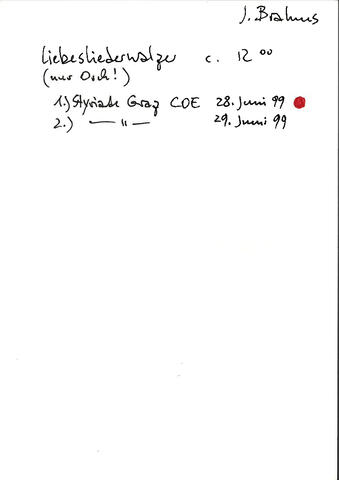 J. Brahms
Liebesliederwalzer c. 12 00
(nur Orch!)
1.) Styriate Graz COE 28. Juni 99
2.) — " — 29. Juni 99